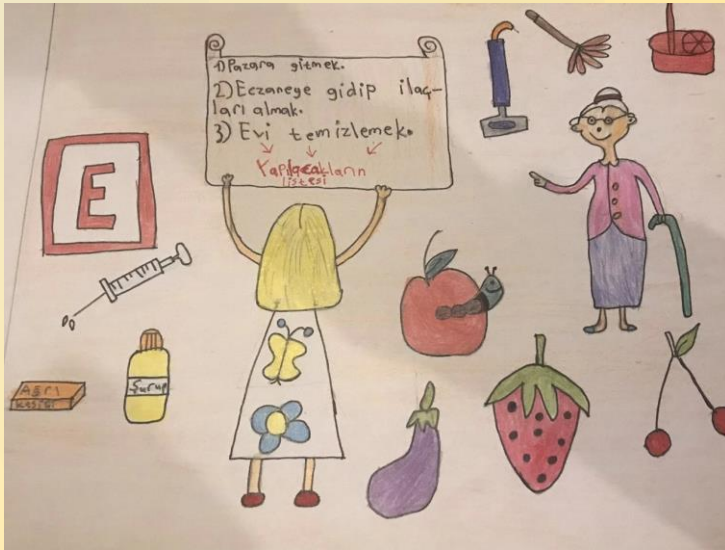 1) Pazara gitmek.
2) Eczaneye gidip ilaç-
ları almak.
3) Evi temizlemek.
Yapılacakların
listesi
E
Şurup
AĞRI
KESİCİ